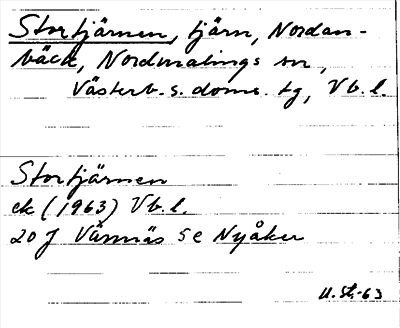 Stortjärnen, tjärn, Nordan-
bäck, Nordmalings sn,
Västerb. s. doms. tg, Vb. l.
Stortjärnen
ek (1963) Vb. l.
20 J Vännäs se Nyåker
U. St. -63